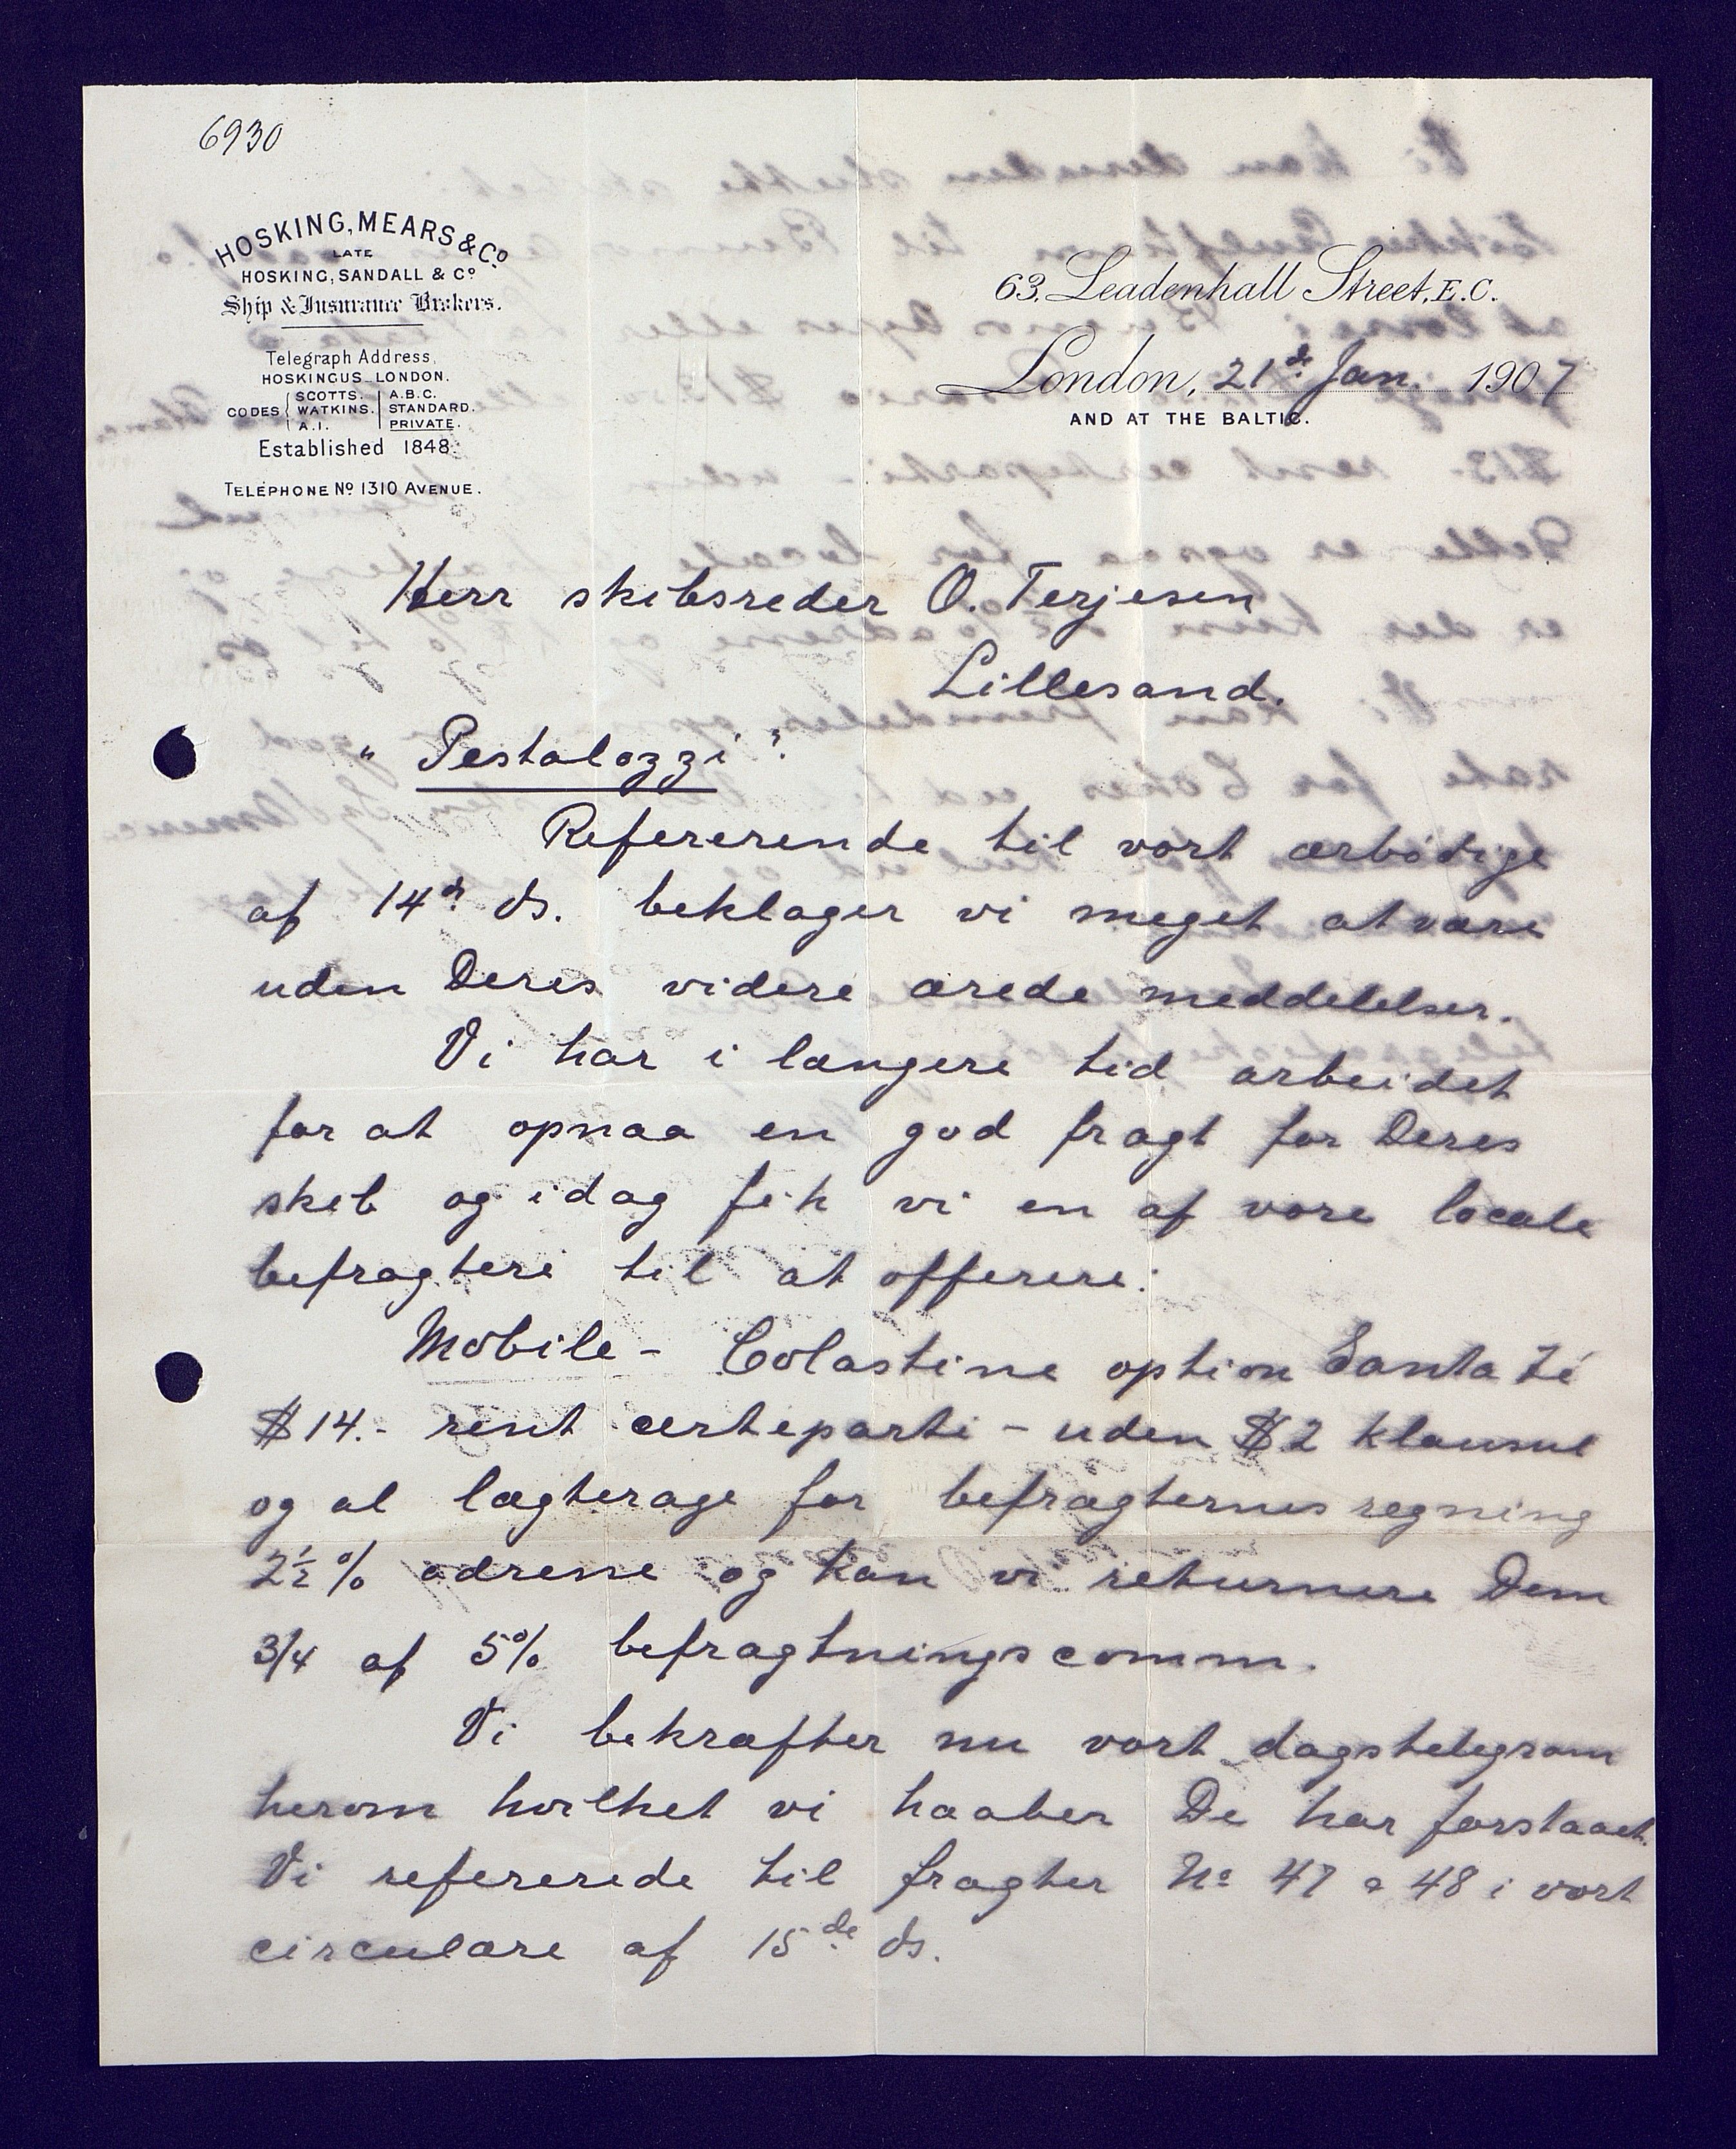 6930
HOSKING, MEARS & Co
LATE
HOSKING, SANDALL & Co
Ship & Insurance Brokers.
Telegraph Address,
HOSKINGUS LONDON.
CODES { SCOTTS. WATKINS. A.I. | A.B.C. STANDARD. PRIVATE.
Established 1848.
TELEPHONE No 1310 AVENUE.
63, Leadenhall Street, E.C.
London, 21de Jan. 1907
AND AT THE BALTIC.
Herr skibsreder O. Terjesen
Lillesand.
"Pestalozzi".
Refererende til vort ærbødige
af 14de ds. beklager vi meget at være
uden Deres videre ærede meddelelser.
Vi har i længere tid arbeidet
for at opnaa en god fragt for Deres
skib og idag fik vi en af vore locale
befragtere til at offerere:
Mobile - Colastine option Santa Fé
$14.- rent certeparti - uden $2 klausul
og al lægterage for befragternes regning
2½% adresse og kan vi returnere Dem
3/4 af 5% befragtningscomm.
Vi bekræfter nu vort dagstelegram
herom hvilket vi haaber De har forstaaet.
Vi refererede til fragter No 47 & 48 i vort
circulære af 15de ds.